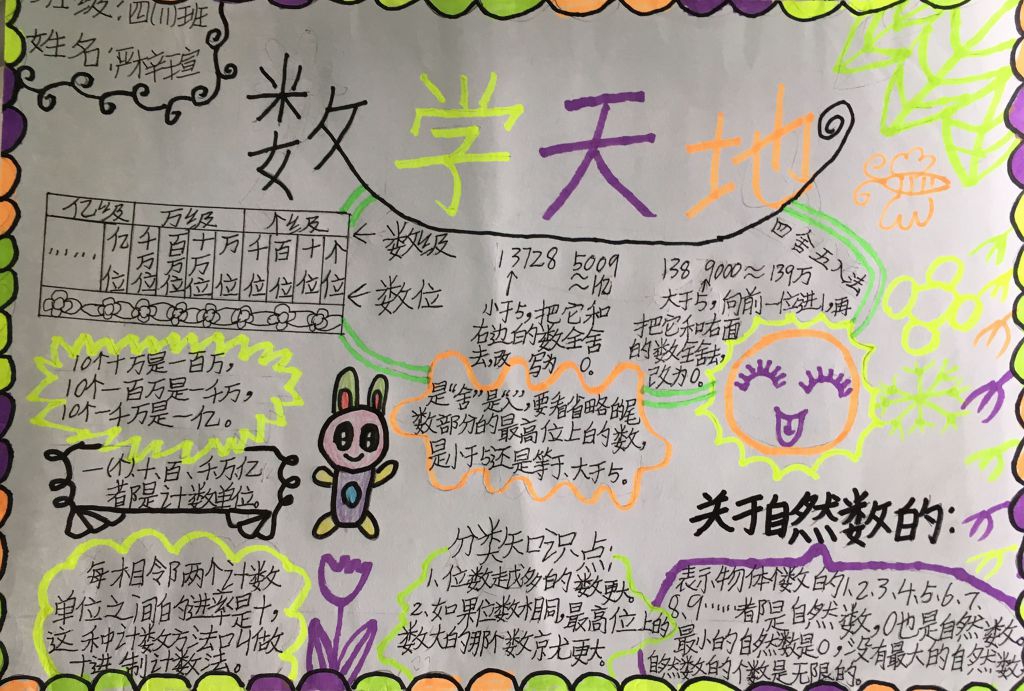 班级:四(1)班
姓名:严梓瑄
数学天地
亿级 万级 个级
…… 亿位 千万位 百万位 十万位 万位 千位 百位 十位 个位
← 数级
← 数位
四舍五入法
13728 5009 ≈ 1亿
小于5,把它和
右边的数全舍
去,改写为0。
138 9000≈139万
大于5,向前一位进1,再
把它和右面
的数全舍去,
改为0。
10个十万是一百万,
10个一百万是一千万,
10个一千万是一亿。
是“舍”是“入”,要看省略的尾
数部分的最高位上的数,
是小于5还是等于、大于5。
一(个)、十、百、千、万、亿
都是计数单位。
关于自然数的:
每相邻两个计数
单位之间的进率是十,
这种计数方法叫做
十进制计数法。
分类知识点:
1.位数越多的数更大
2.如果位数相同,最高位上的
数大的那个数就更大。
表示物体个数的1、2、3、4、5、6、7、
8、9……都是自然数,0也是自然数。
最小的自然数是0,没有最大的自然数
自然数的个数是无限的。